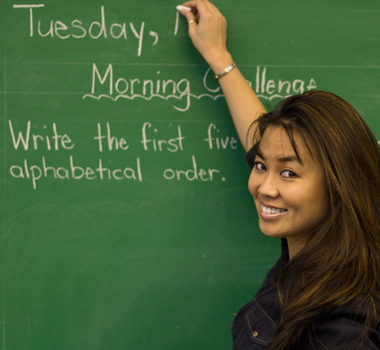 Tuesday,
Morning Challenge
Write the first five
alphabetical order.